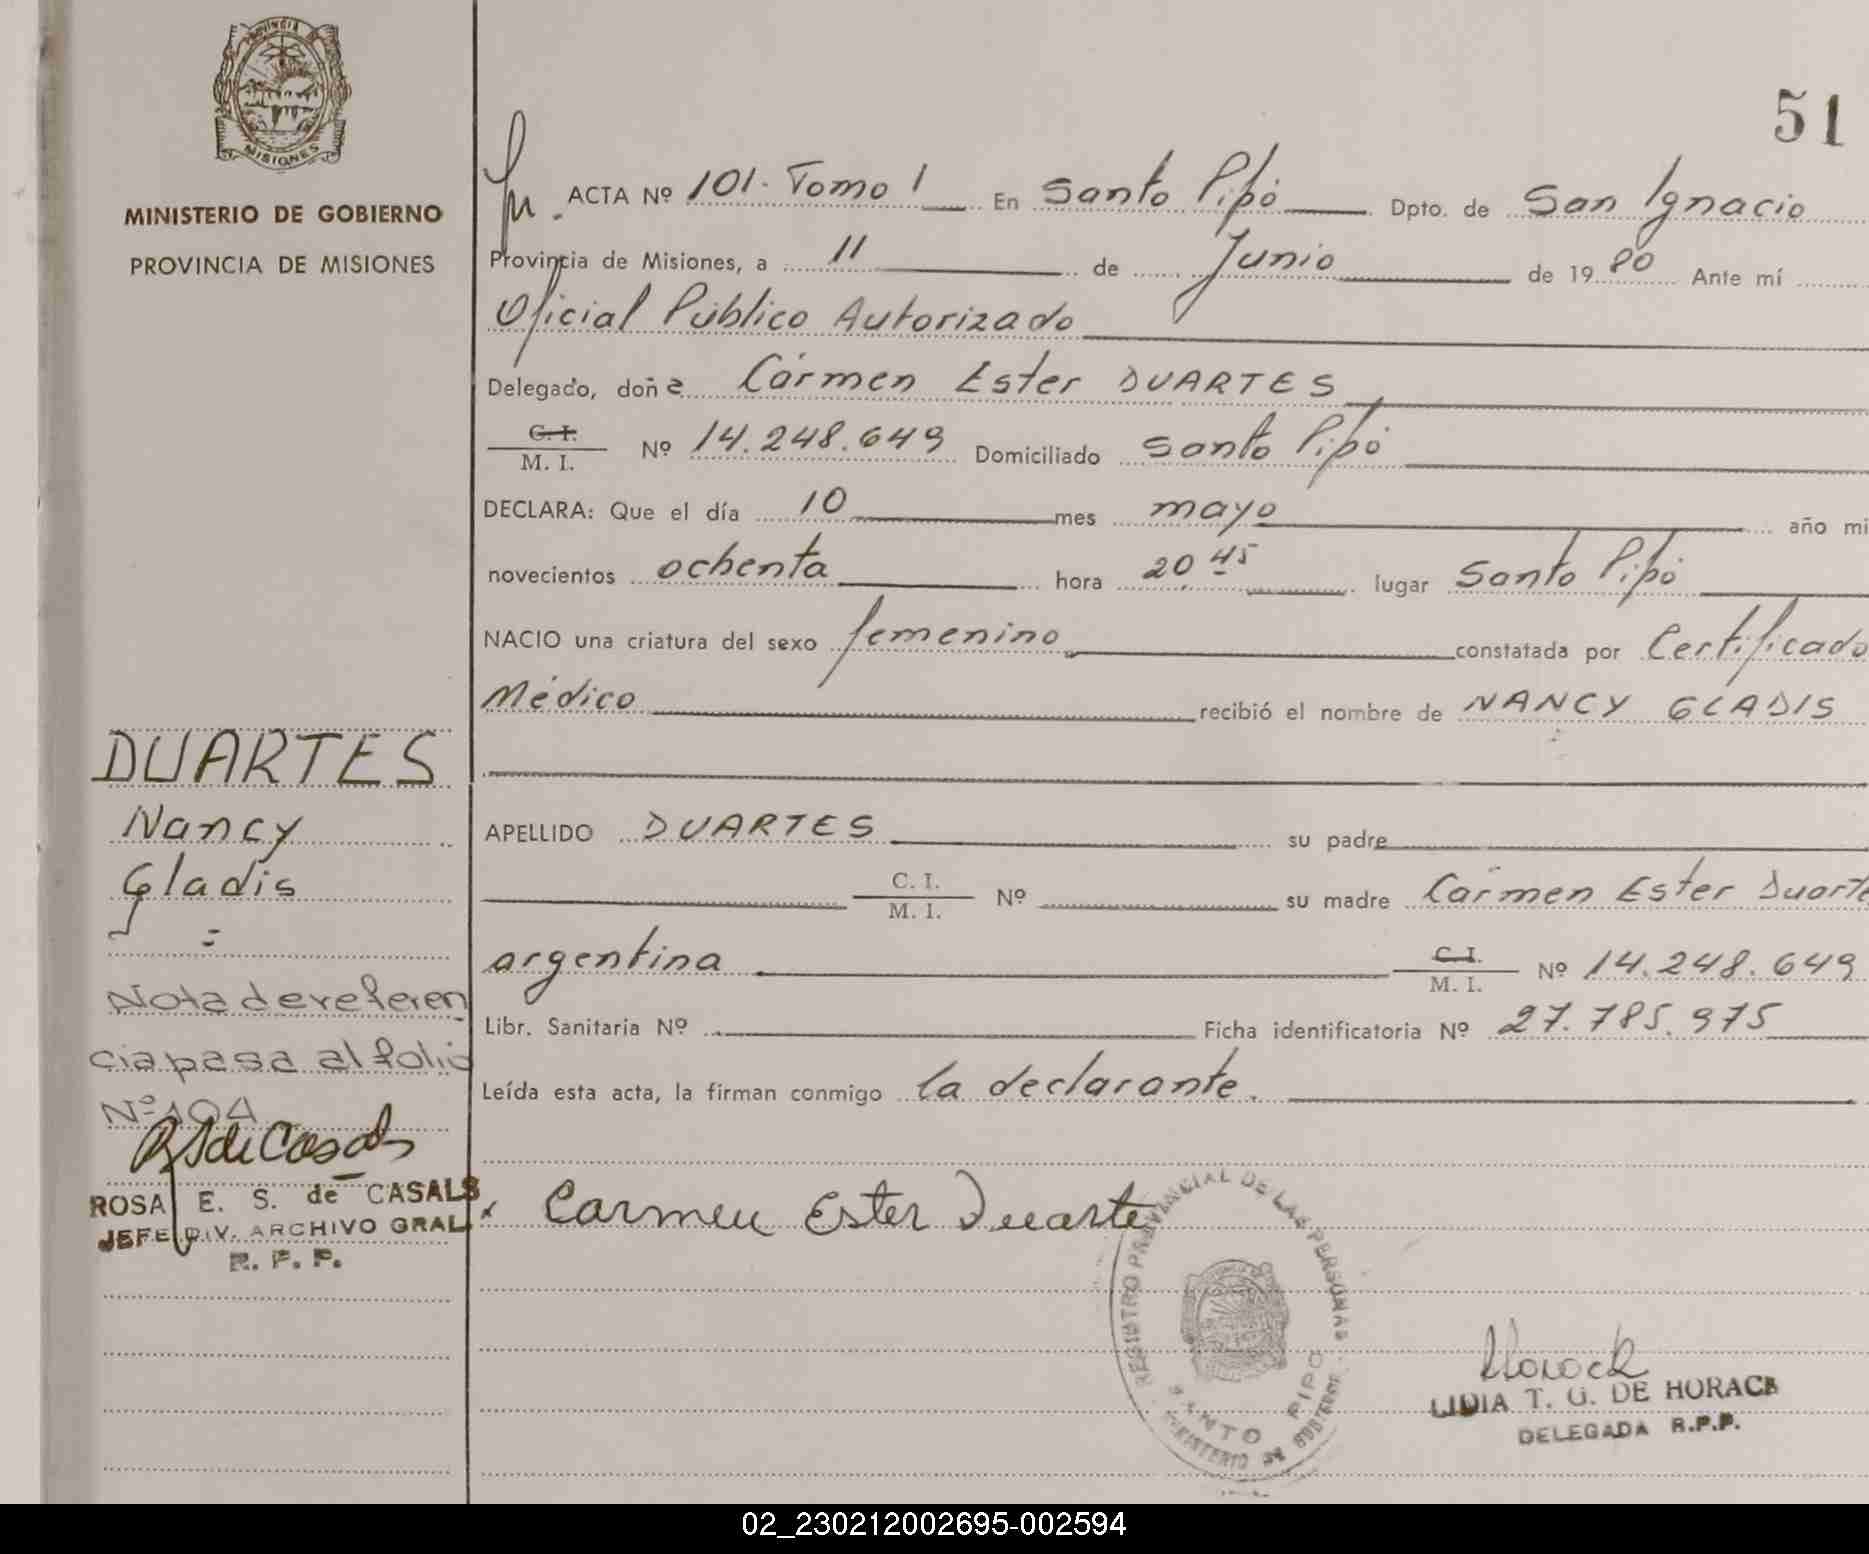 PROVINCIA DE
MISIONES
MINISTERIO DE GOBIERNO
PROVINCIA DE MISIONES
51
ACTA Nº 101. Tomo 1 En Santo Pipó Dpto. de San Ignacio
Provincia de Misiones, a 11 de Junio de 19 80 Ante mí
Oficial Público Autorizado
Delegado, doña Cármen Ester DUARTES
C. I.
M. I. Nº 14.248.649 Domiciliado Santo Pipó
DECLARA: Que el día 10 mes mayo año mi
novecientos ochenta hora 20 45 lugar Santo Pipó
NACIO una criatura del sexo femenino constatada por Certificado
Médico recibió el nombre de NANCY GLADIS
APELLIDO DUARTES su padre
C. I.
M. I. Nº su madre Cármen Ester Duarte
argentina C. I.
M. I. Nº 14.248.649
Libr. Sanitaria Nº Ficha identificatoria Nº 27.785.975
Leída esta acta, la firman conmigo la declarante.
DUARTES
Nancy
Gladis
Nota de referen
cia pasa al folio
Nº 104
ROSA E. S. de CASALS
JEFE DIV. ARCHIVO GRAL.
R. P. P.
Carmen Ester Duarte
REGISTRO PROVINCIAL DE LAS PERSONAS
SANTO PIPO
MINISTERIO DE GOBIERNO
LIDIA T. G. DE HORACK
DELEGADA R.P.P.
02_230212002695-002594